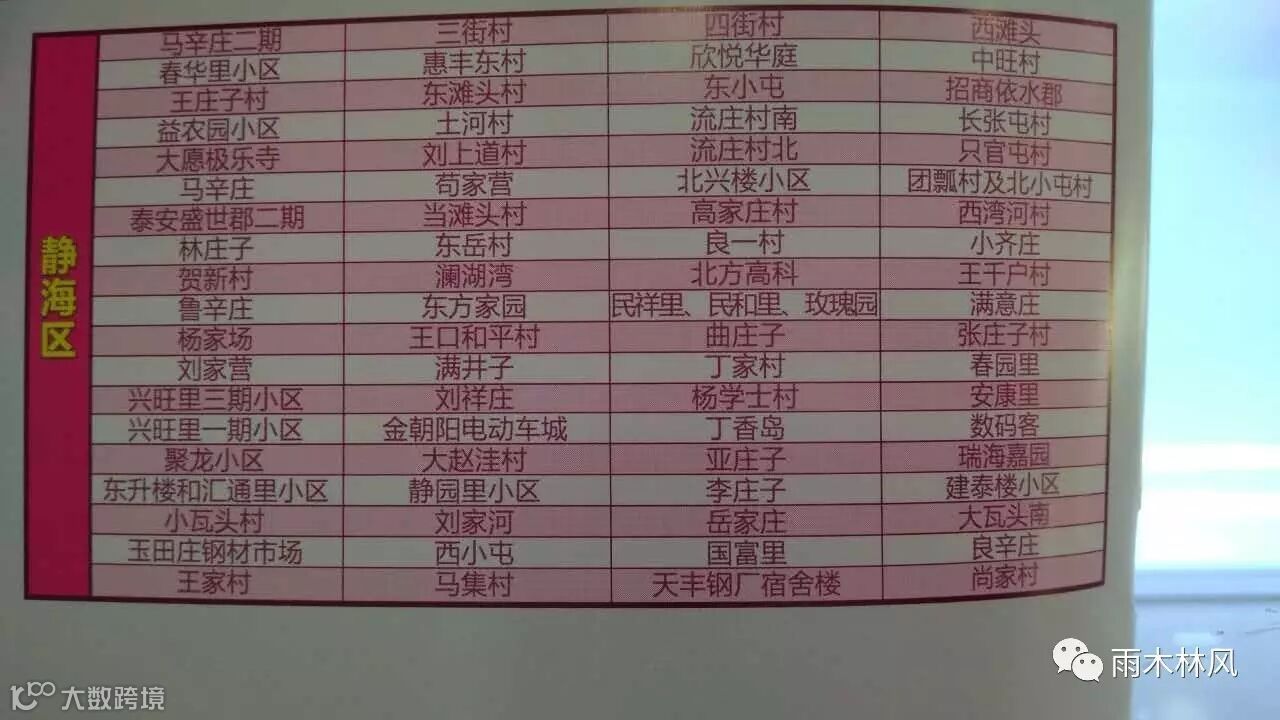 静海区
马辛庄二期 三街村 四街村 西滩头
春华里小区 惠丰东村 欣悦华庭 中旺村
王庄子村 东滩头村 东小屯 招商依水郡
益农园小区 土河村 流庄村南 长张屯村
大愿极乐寺 刘上道村 流庄村北 只官屯村
马辛庄 苟家营 北兴楼小区 团瓢村及北小屯村
泰安盛世郡二期 当滩头村 高家庄村 西湾河村
林庄子 东岳村 良一村 小齐庄
贺新村 澜湖湾 北方高科 王千户村
鲁辛庄 东方家园 民祥里、民和里、玫瑰园 满意庄
杨家场 王口和平村 曲庄子 张庄子村
刘家营 满井子 丁家村 春园里
兴旺里三期小区 刘祥庄 杨学士村 安康里
兴旺里一期小区 金朝阳电动车城 丁香岛 数码客
聚龙小区 大赵洼村 亚庄子 瑞海嘉园
东升楼和汇通里小区 静园里小区 李庄子 建泰楼小区
小瓦头村 刘家河 岳家庄 大瓦头南
玉田庄钢材市场 西小屯 国富里 良辛庄
王家村 马集村 天丰钢厂宿舍楼 尚家村
雨木林风
大数跨境